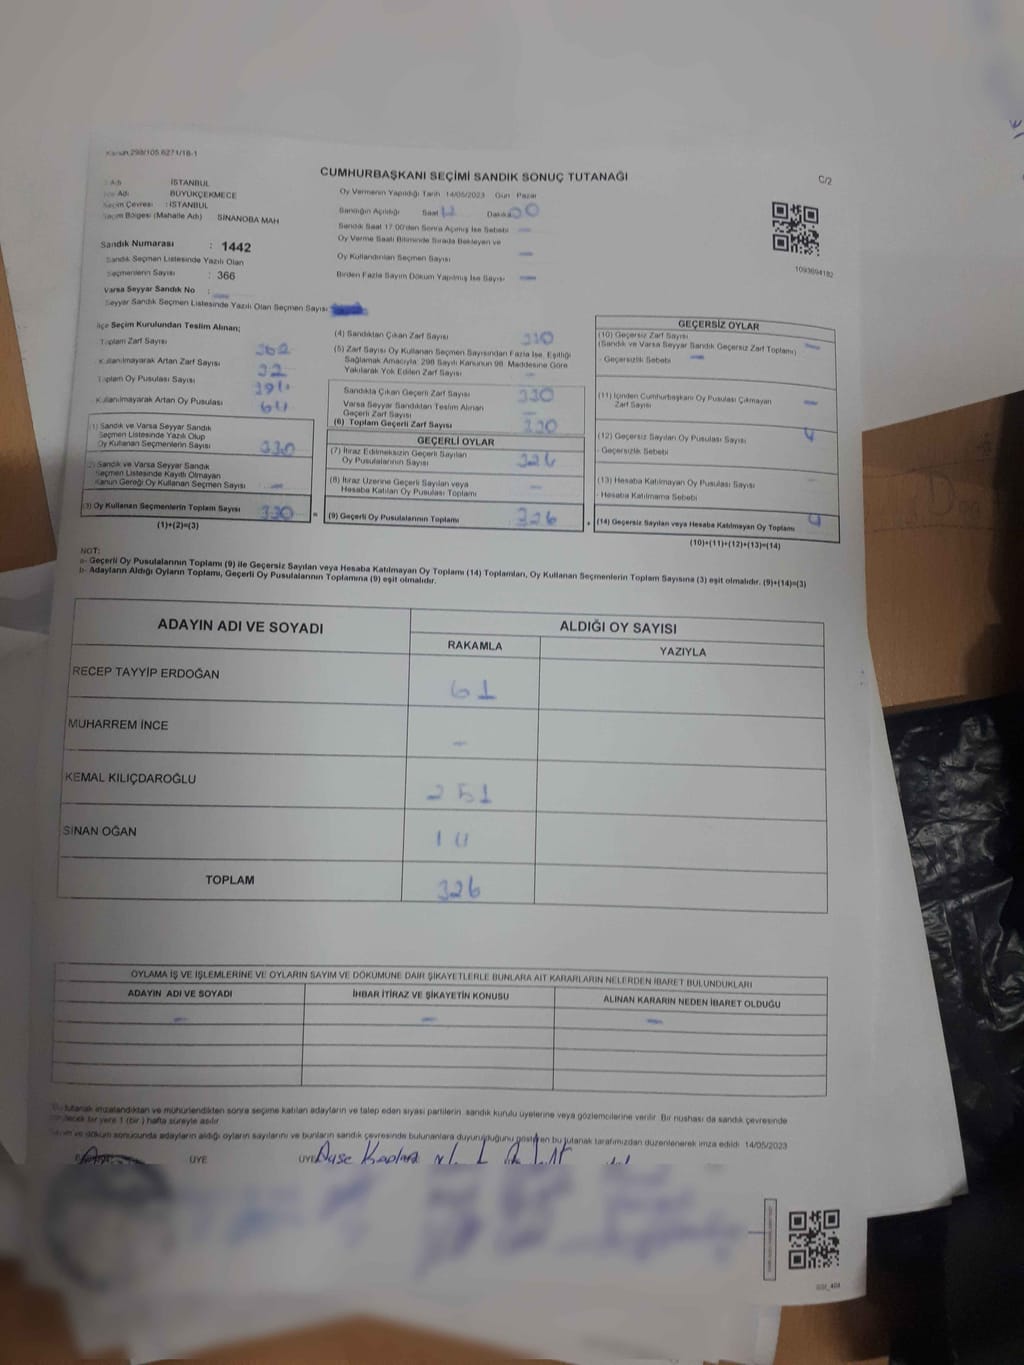 Kanun 298/105.6271/18-1
CUMHURBAŞKANI SEÇİMİ SANDIK SONUÇ TUTANAĞI
C/2
Adı İSTANBUL
Adı BÜYÜKÇEKMECE
Seçim Çevresi : İSTANBUL
Seçim Bölgesi (Mahalle Adı) SİNANOBA MAH
Oy Vermenin Yapıldığı Tarih 14/05/2023 Gün Pazar
Sandığın Açıldığı Saat Dakika
Sandık Saat 17.00'den Sonra Açılmış İse Sebebi -
Oy Verme Saati Bitiminde Sırada Bekleyen ve
Oy Kullandırılan Seçmen Sayısı -
Birden Fazla Sayım Döküm Yapılmış İse Sayısı -
1093694182
Sandık Numarası : 1442
Sandık Seçmen Listesinde Yazılı Olan
Seçmenlerin Sayısı : 366
Varsa Seyyar Sandık No : -
Seyyar Sandık Seçmen Listesinde Yazılı Olan Seçmen Sayısı
İlçe Seçim Kurulundan Teslim Alınan;
Toplam Zarf Sayısı 362
Kullanılmayarak Artan Zarf Sayısı 32
Toplam Oy Pusulası Sayısı 394
Kullanılmayarak Artan Oy Pusulası 64
(1) Sandık ve Varsa Seyyar Sandık
Seçmen Listesinde Yazılı Olup
Oy Kullanan Seçmenlerin Sayısı 330
(2) Sandık ve Varsa Seyyar Sandık
Seçmen Listesinde Kayıtlı Olmayan
Kanun Gereği Oy Kullanan Seçmen Sayısı -
(3) Oy Kullanan Seçmenlerin Toplam Sayısı 330
(1)+(2)=(3)
(4) Sandıktan Çıkan Zarf Sayısı 330
(5) Zarf Sayısı Oy Kullanan Seçmen Sayısından Fazla İse, Eşitliği
Sağlamak Amacıyla; 298 Sayılı Kanunun 98. Maddesine Göre
Yakılarak Yok Edilen Zarf Sayısı -
Sandıkta Çıkan Geçerli Zarf Sayısı 330
Varsa Seyyar Sandıktan Teslim Alınan
Geçerli Zarf Sayısı -
(6) Toplam Geçerli Zarf Sayısı 330
GEÇERLİ OYLAR
(7) İtiraz Edilmeksizin Geçerli Sayılan
Oy Pusulalarının Sayısı 326
(8) İtiraz Üzerine Geçerli Sayılan veya
Hesaba Katılan Oy Pusulası Toplamı -
= (9) Geçerli Oy Pusulalarının Toplamı 326
GEÇERSİZ OYLAR
(10) Geçersiz Zarf Sayısı
(Sandık ve Varsa Seyyar Sandık Geçersiz Zarf Toplamı) -
- Geçersizlik Sebebi -
(11) İçinden Cumhurbaşkanı Oy Pusulası Çıkmayan
Zarf Sayısı -
(12) Geçersiz Sayılan Oy Pusulası Sayısı 4
- Geçersizlik Sebebi
(13) Hesaba Katılmayan Oy Pusulası Sayısı -
- Hesaba Katılmama Sebebi
+ (14) Geçersiz Sayılan veya Hesaba Katılmayan Oy Toplamı 4
(10)+(11)+(12)+(13)=(14)
NOT:
a- Geçerli Oy Pusulalarının Toplamı (9) ile Geçersiz Sayılan veya Hesaba Katılmayan Oy Toplamı (14) Toplamları, Oy Kullanan Seçmenlerin Toplam Sayısına (3) eşit olmalıdır. (9)+(14)=(3)
b- Adayların Aldığı Oyların Toplamı, Geçerli Oy Pusulalarının Toplamına (9) eşit olmalıdır.
ADAYIN ADI VE SOYADI
ALDIĞI OY SAYISI
RAKAMLA YAZIYLA
RECEP TAYYİP ERDOĞAN 61
MUHARREM İNCE -
KEMAL KILIÇDAROĞLU 251
SİNAN OĞAN 14
TOPLAM 326
OYLAMA İŞ VE İŞLEMLERİNE VE OYLARIN SAYIM VE DÖKÜMÜNE DAİR ŞİKAYETLERLE BUNLARA AİT KARARLARIN NELERDEN İBARET BULUNDUKLARI
ADAYIN ADI VE SOYADI İHBAR İTİRAZ VE ŞİKAYETİN KONUSU ALINAN KARARIN NEDEN İBARET OLDUĞU
- - -
tutanak imzalandıktan ve mühürlendikten sonra seçime katılan adayların ve talep eden siyasi partilerin, sandık kurulu üyelerine veya gözlemcilerine verilir. Bir nüshası da sandık çevresinde
bir yere 1 (bir) hafta süreyle asılır.
ve döküm sonucunda adayların aldığı oyların sayılarını ve bunların sandık çevresinde bulunanlara duyurulduğunu gösteren bu tutanak tarafımızdan düzenlenerek imza edildi. 14/05/2023
ÜYE ÜYE Ayşe Kaplan